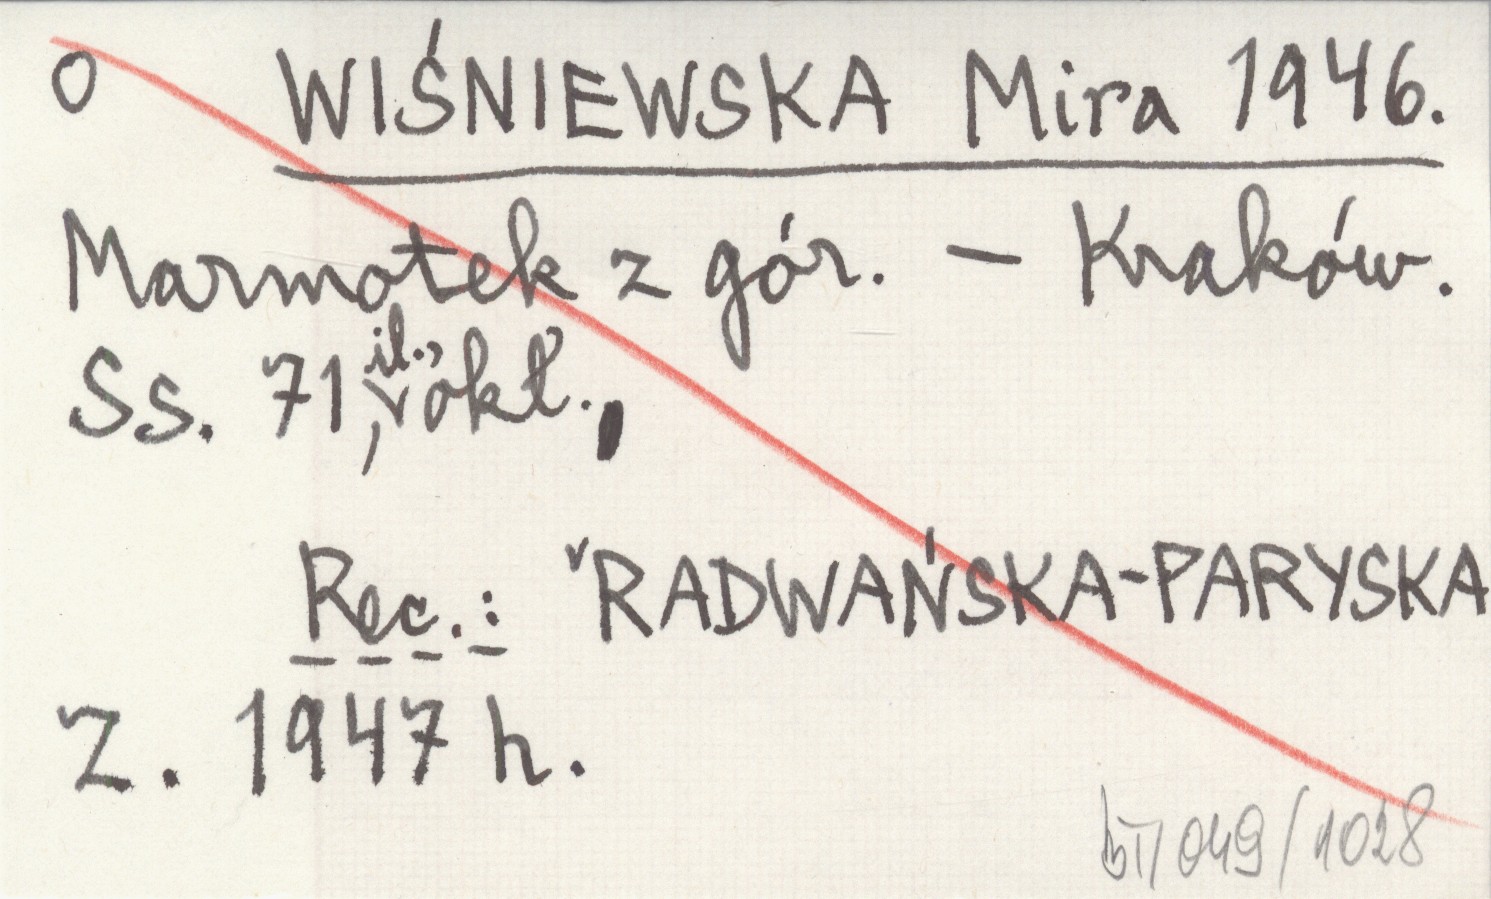 O WIŚNIEWSKA Mira 1946.
Marmotek z gór. – Kraków.
Ss. 71, il., okł.,
Rec.: RADWAŃSKA-PARYSKA
Z. 1947 h.
049/1028